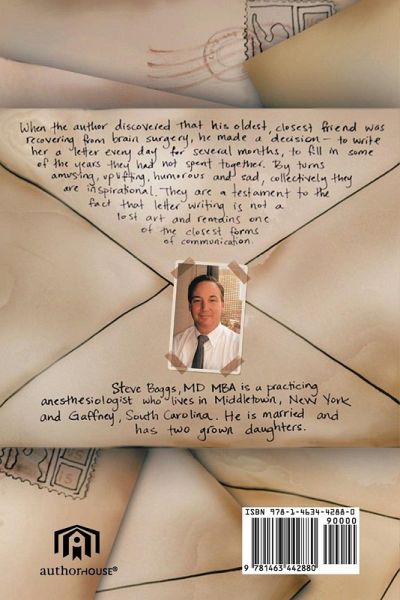 When the author discovered that his oldest, closest friend was
recovering from brain surgery, he made a decision — to write
her a letter every day for several months, to fill in some
of the years they had not spent together. By turns
amusing, uplifting, humorous and sad, collectively they
are inspirational. They are a testament to the
fact that letter writing is not a
lost art and remains one
of the closest forms
of communication.
Steve Baggs, MD MBA is a practicing
anesthesiologist who lives in Middletown, New York
and Gaffney, South Carolina. He is married and
has two grown daughters.
authorHOUSE®
ISBN 978-1-4634-4288-0
90000
9 781463 442880